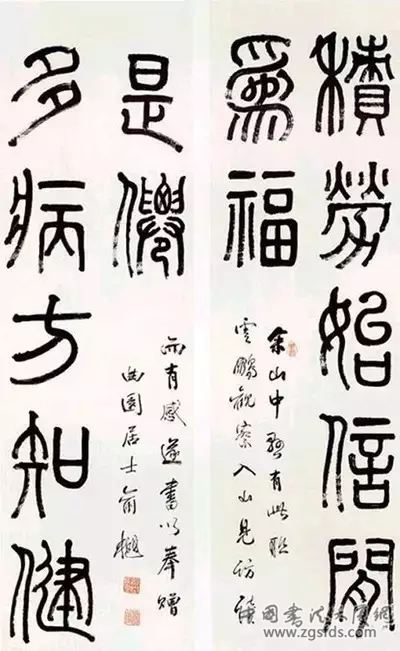 積勞始信閒
爲福
余山中有此聯
雲鵬觀察入山見訪讀
多病方知健
是僊
而有感遂書以奉贈
曲園居士俞樾
www.zgsfds.com